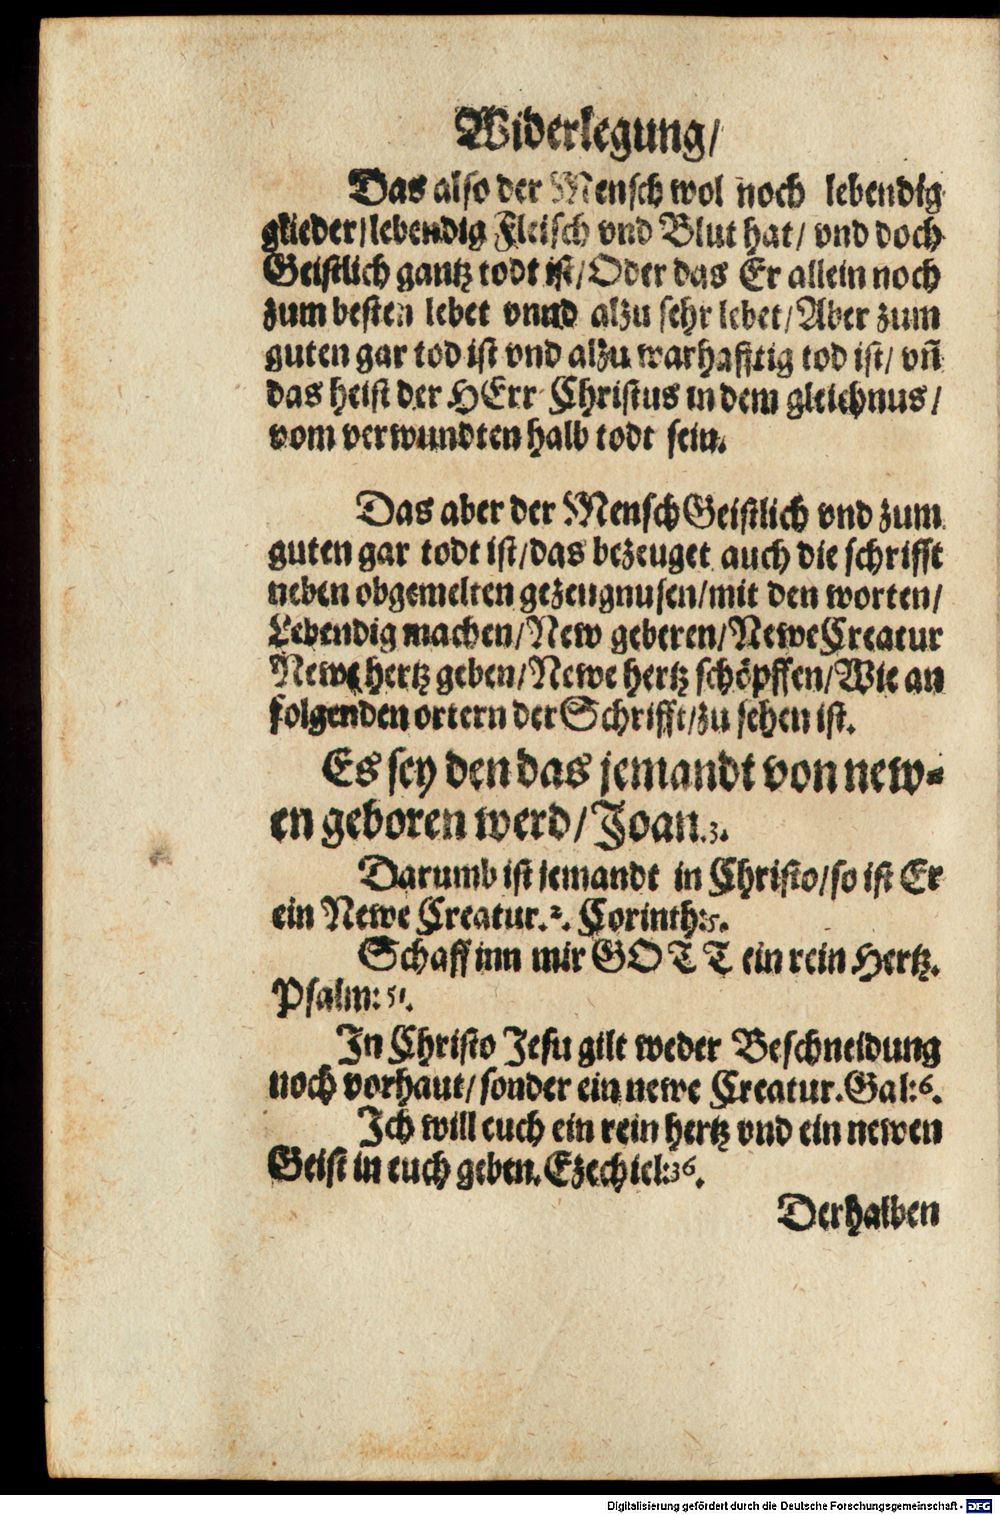 Widerlegung/
Das also der Mensch wol noch lebendig
glieder/lebendig Fleisch vnd Blut hat/ vnd doch
Geistlich gantz todt ist/Oder das Er allein noch
zum besten lebet vnnd alzu sehr lebet/Aber zum
guten gar tod ist vnd alzu warhafftig tod ist/ vñ
das heist der HErr Christus in dem gleichnus/
vom verwundten halb todt sein.
Das aber der Mensch Geistlich vnd zum
guten gar todt ist/das bezeuget auch die schrifft
neben obgemelten gezeugnusen/mit den worten/
Lebendig machen/New geberen/Newe Creatur
Newe hertz geben/Newe hertz schöpffen/Wie an
folgenden ortern der Schrifft/zu sehen ist.
Es sey den das jemandt von new-
en geboren werd/Joan.3.
Darumb ist jemandt in Christo/so ist Er
ein Newe Creatur.2. Corinth:5.
Schaff inn mir GOTT ein rein Hertz.
Psalm:51.
In Christo Jesu gilt weder Beschneidung
noch vorhaut/sonder ein newe Creatur.Gal:6.
Ich will euch ein rein hertz vnd ein newen
Geist in euch geben.Ezechiel:36.
Derhalben
Digitalisierung gefördert durch die Deutsche Forschungsgemeinschaft - DFG